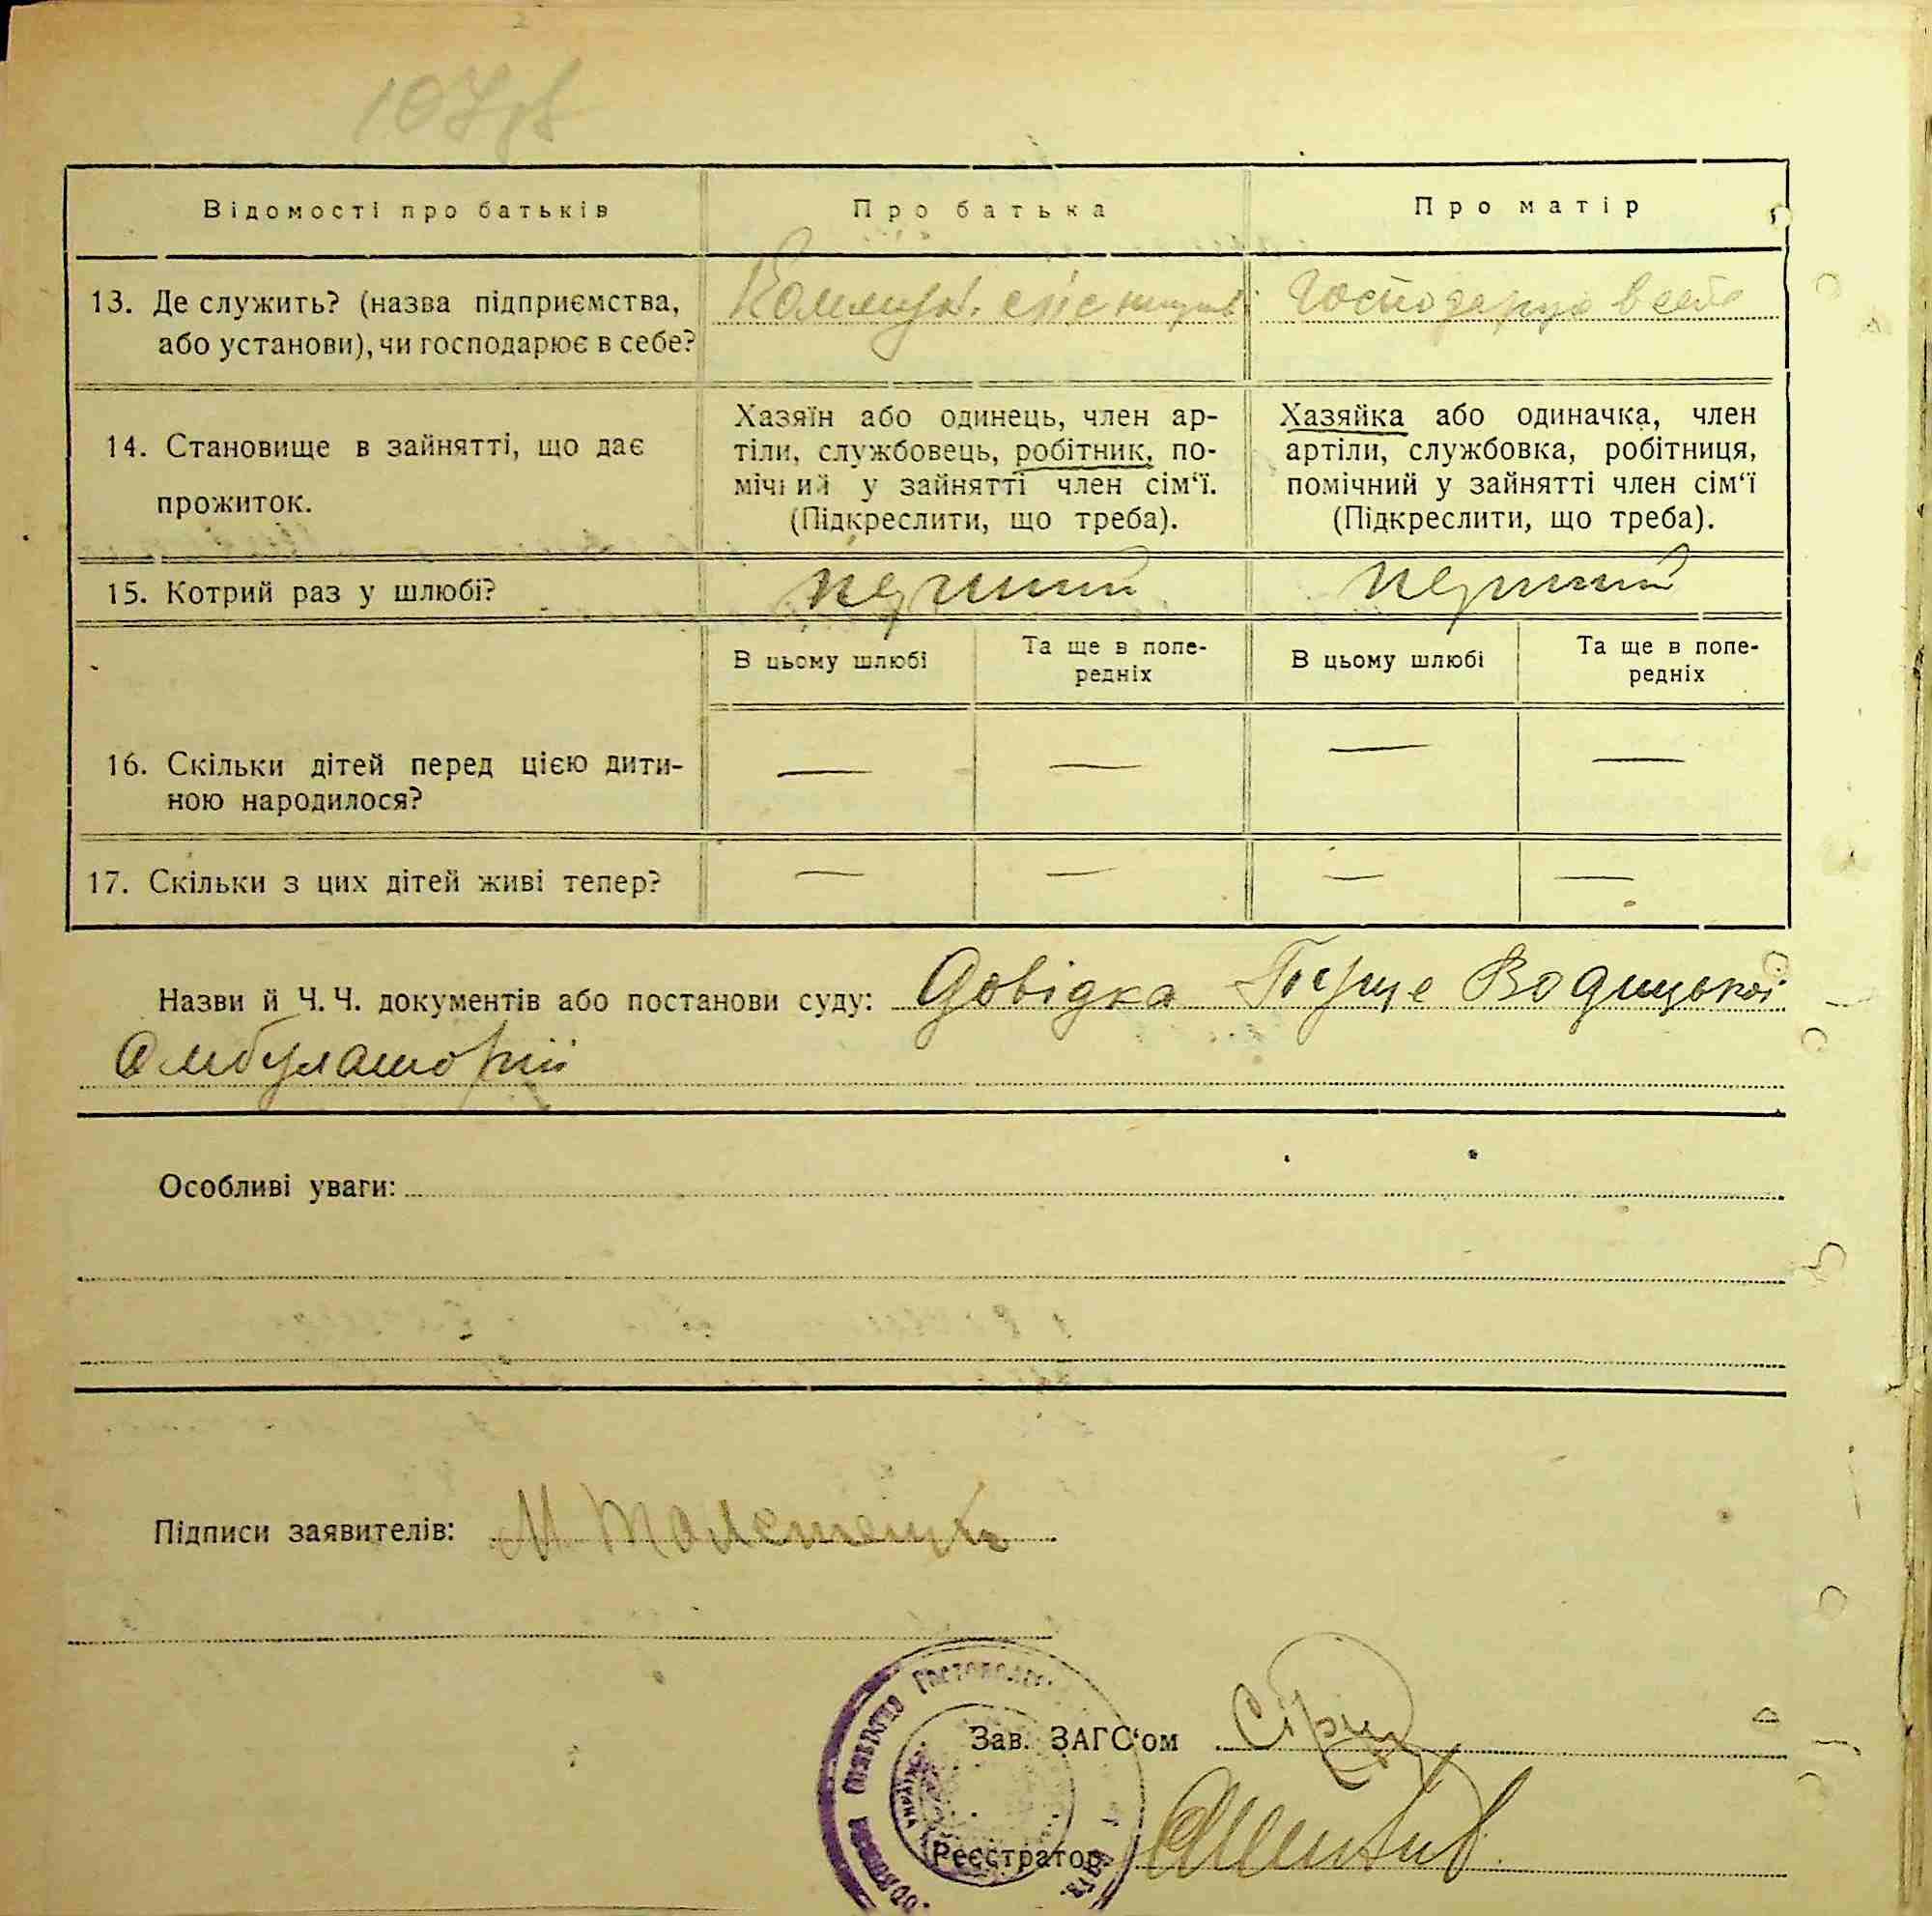 Відомості про батьків
Про батька
Про матір
13. Де служить? (назва підприємства,
або установи), чи господарює в себе?
Господарує в себе
14. Становище в зайнятті, що дає
прожиток.
Хазяїн або одинець, член ар-
тіли, службовець, робітник, по-
мічний у зайнятті член сім‘ї.
(Підкреслити, що треба).
Хазяйка або одиначка, член
артіли, службовка, робітниця,
помічний у зайнятті член сім‘ї
(Підкреслити, що треба).
15. Котрий раз у шлюбі?
перший
перший
В цьому шлюбі
Та ще в попе-
редніх
В цьому шлюбі
Та ще в попе-
редніх
16. Скільки дітей перед цією дити-
ною народилося?
— — — —
17. Скільки з цих дітей живі тепер?
— — — —
Назви й Ч. Ч. документів або постанови суду: Довідка Пуще Водицької
Амбулаторії
Особливі уваги:
Підписи заявителів:
Зав. ЗАГС‘ом
Реєстратор